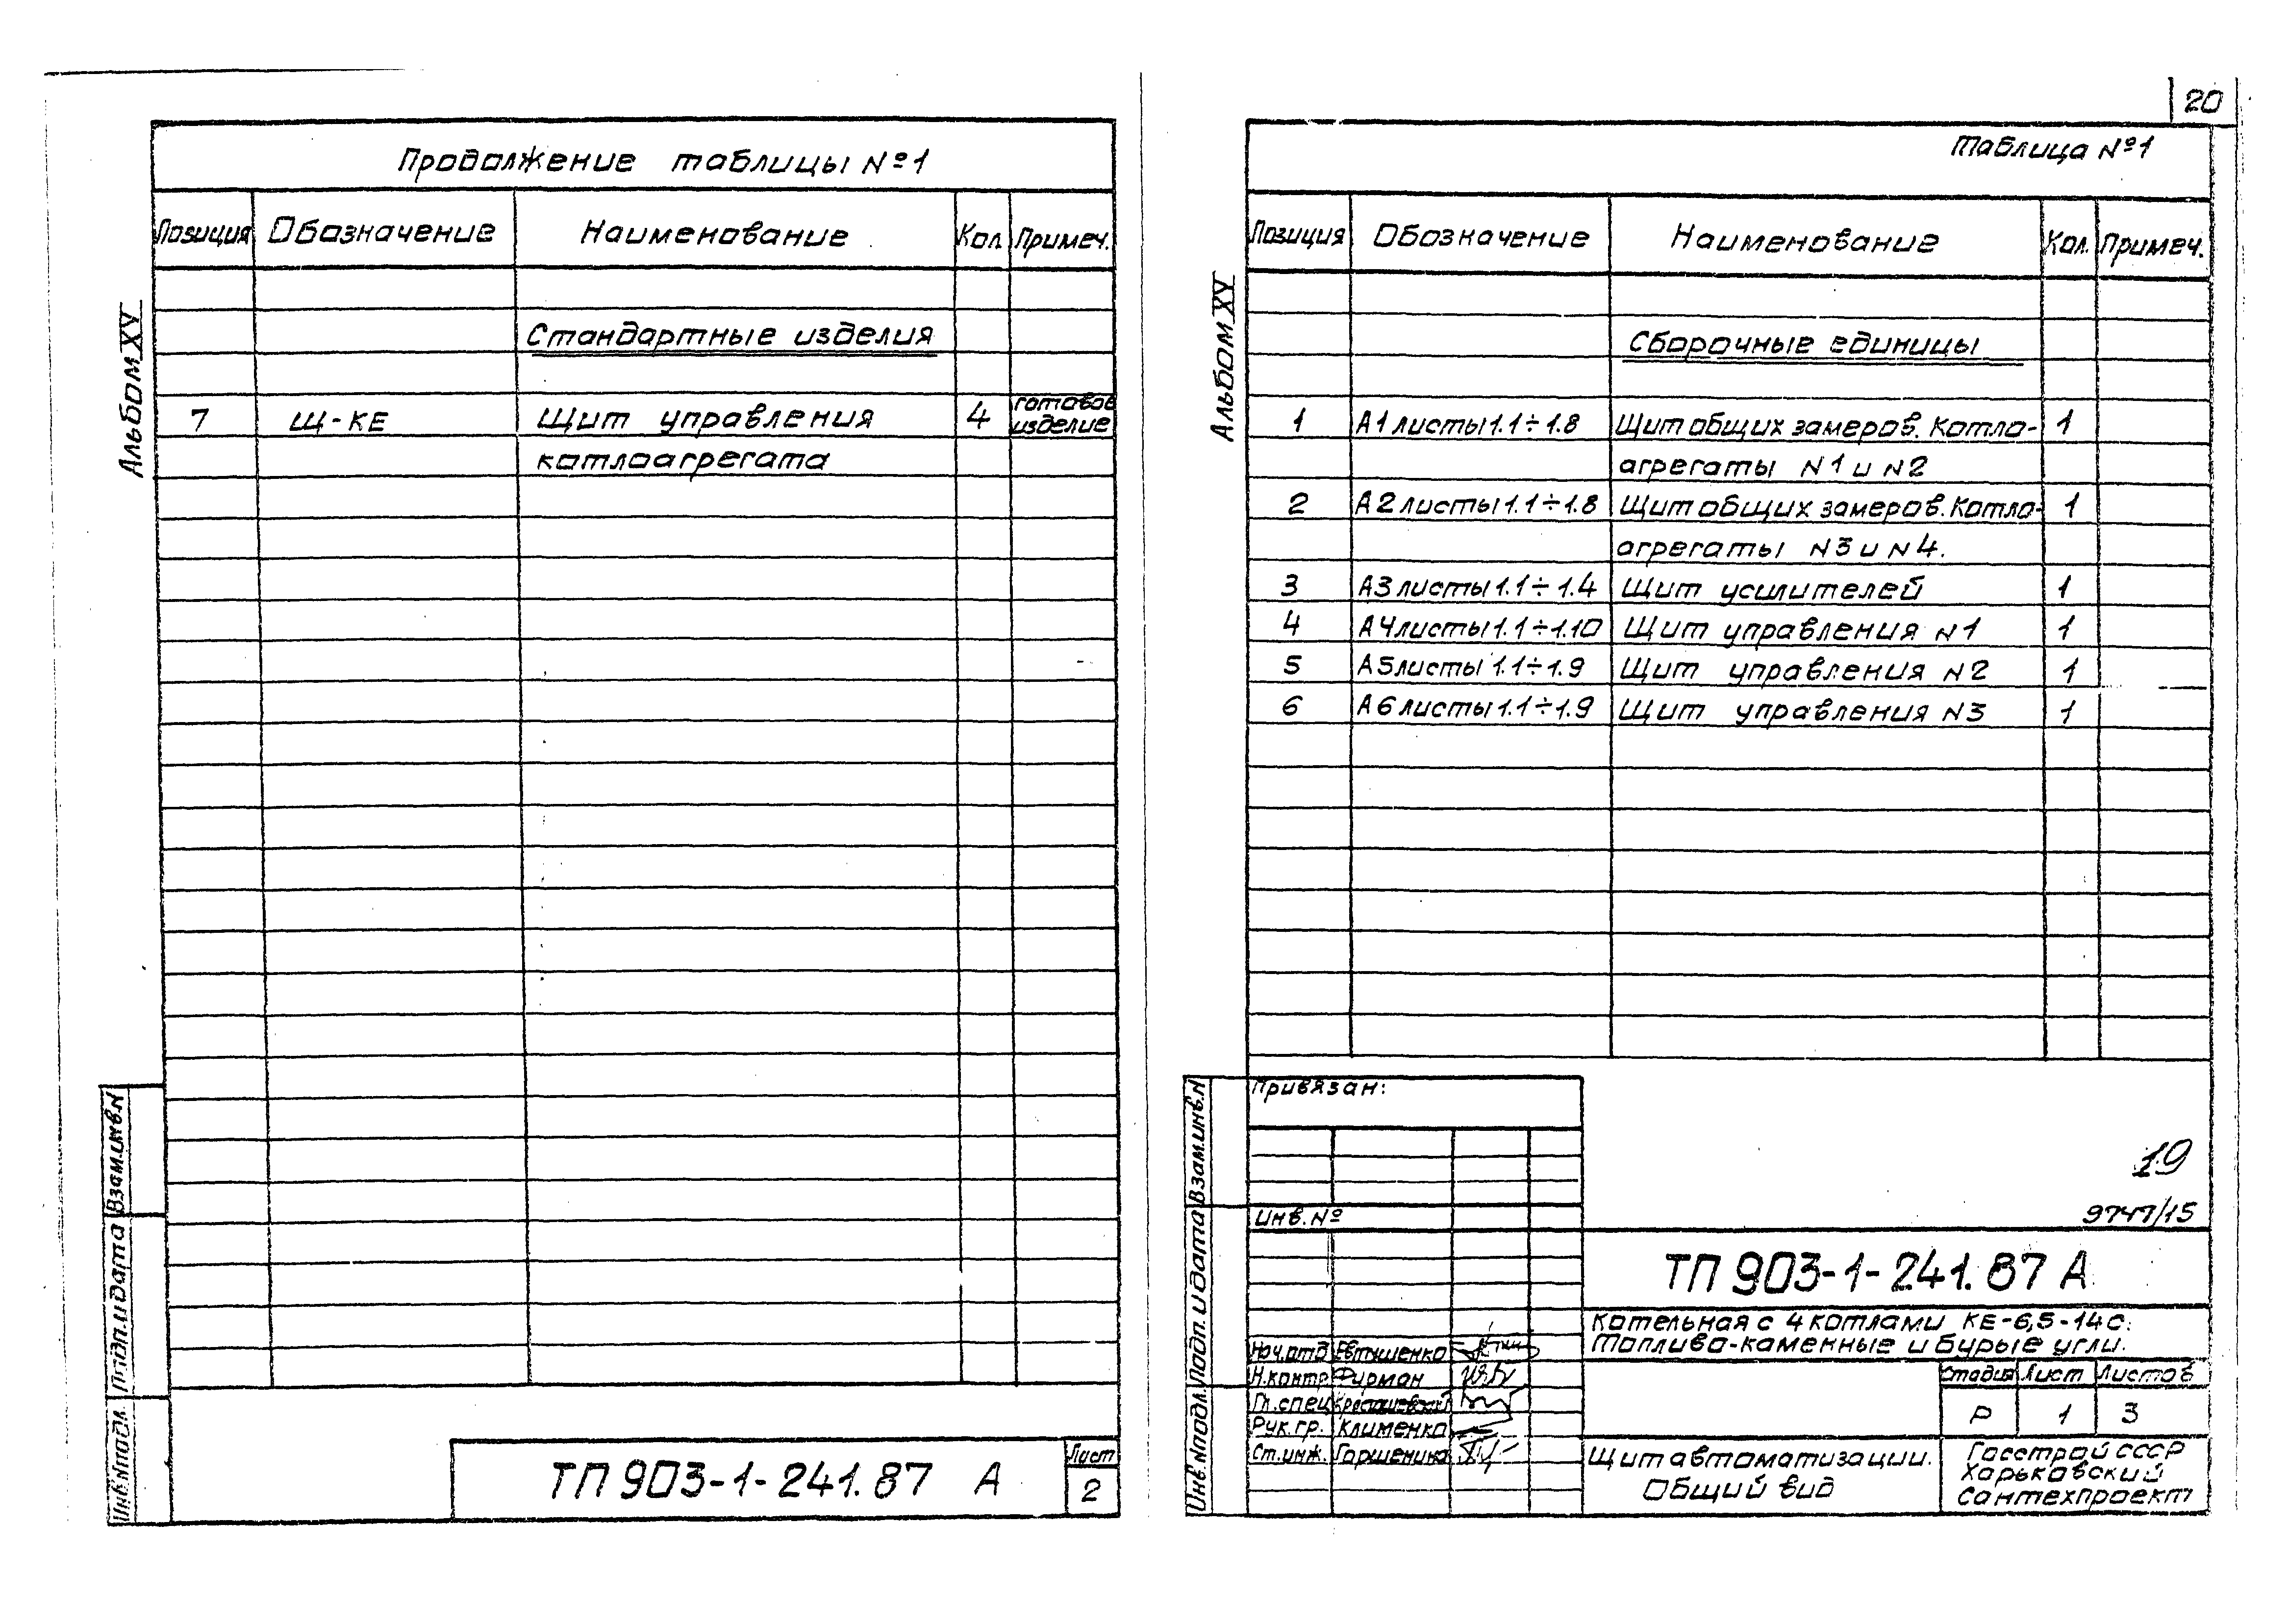 Продолжение таблицы №1
Позиция Обозначение Наименование Кол. Примеч.
Стандартные изделия
7 Щ-КЕ Щит управления 4 готовое изделие
котлоагрегата
Альбом XV
Взам.инв.N
Подп. и дата
Инв.Nподл.
ТП 903-1-241.87 А
Лист
2
20
Таблица №1
Позиция Обозначение Наименование Кол. Примеч.
Сборочные единицы
1 А1 листы 1.1÷1.8 Щит общих замеров. Котло- 1
агрегаты N1 и N2
2 А2 листы 1.1÷1.8 Щит общих замеров. Котло- 1
агрегаты N3 и N4.
3 А3 листы 1.1÷1.4 Щит усилителей 1
4 А4 листы 1.1÷1.10 Щит управления N1 1
5 А5 листы 1.1÷1.9 Щит управления N2 1
6 А6 листы 1.1÷1.9 Щит управления N3 1
Альбом XV
Взам.инв.N
Подп. и дата
Инв.Nподл.
Привязан:
Инв. №
19
9747/15
ТП 903-1-241.87 А
Котельная с 4 котлами КЕ-6,5-14с.
Топливо-каменные и бурые угли.
Нач.отд Евтушенко
Н.контр. Фирман
Гл.спец.
Рук.гр. Клименко
Ст.инж. Горшенина
Стадия Лист Листов
Р 1 3
Щит автоматизации.
Общий вид
Госстрой СССР
Харьковский
Сантехпроект